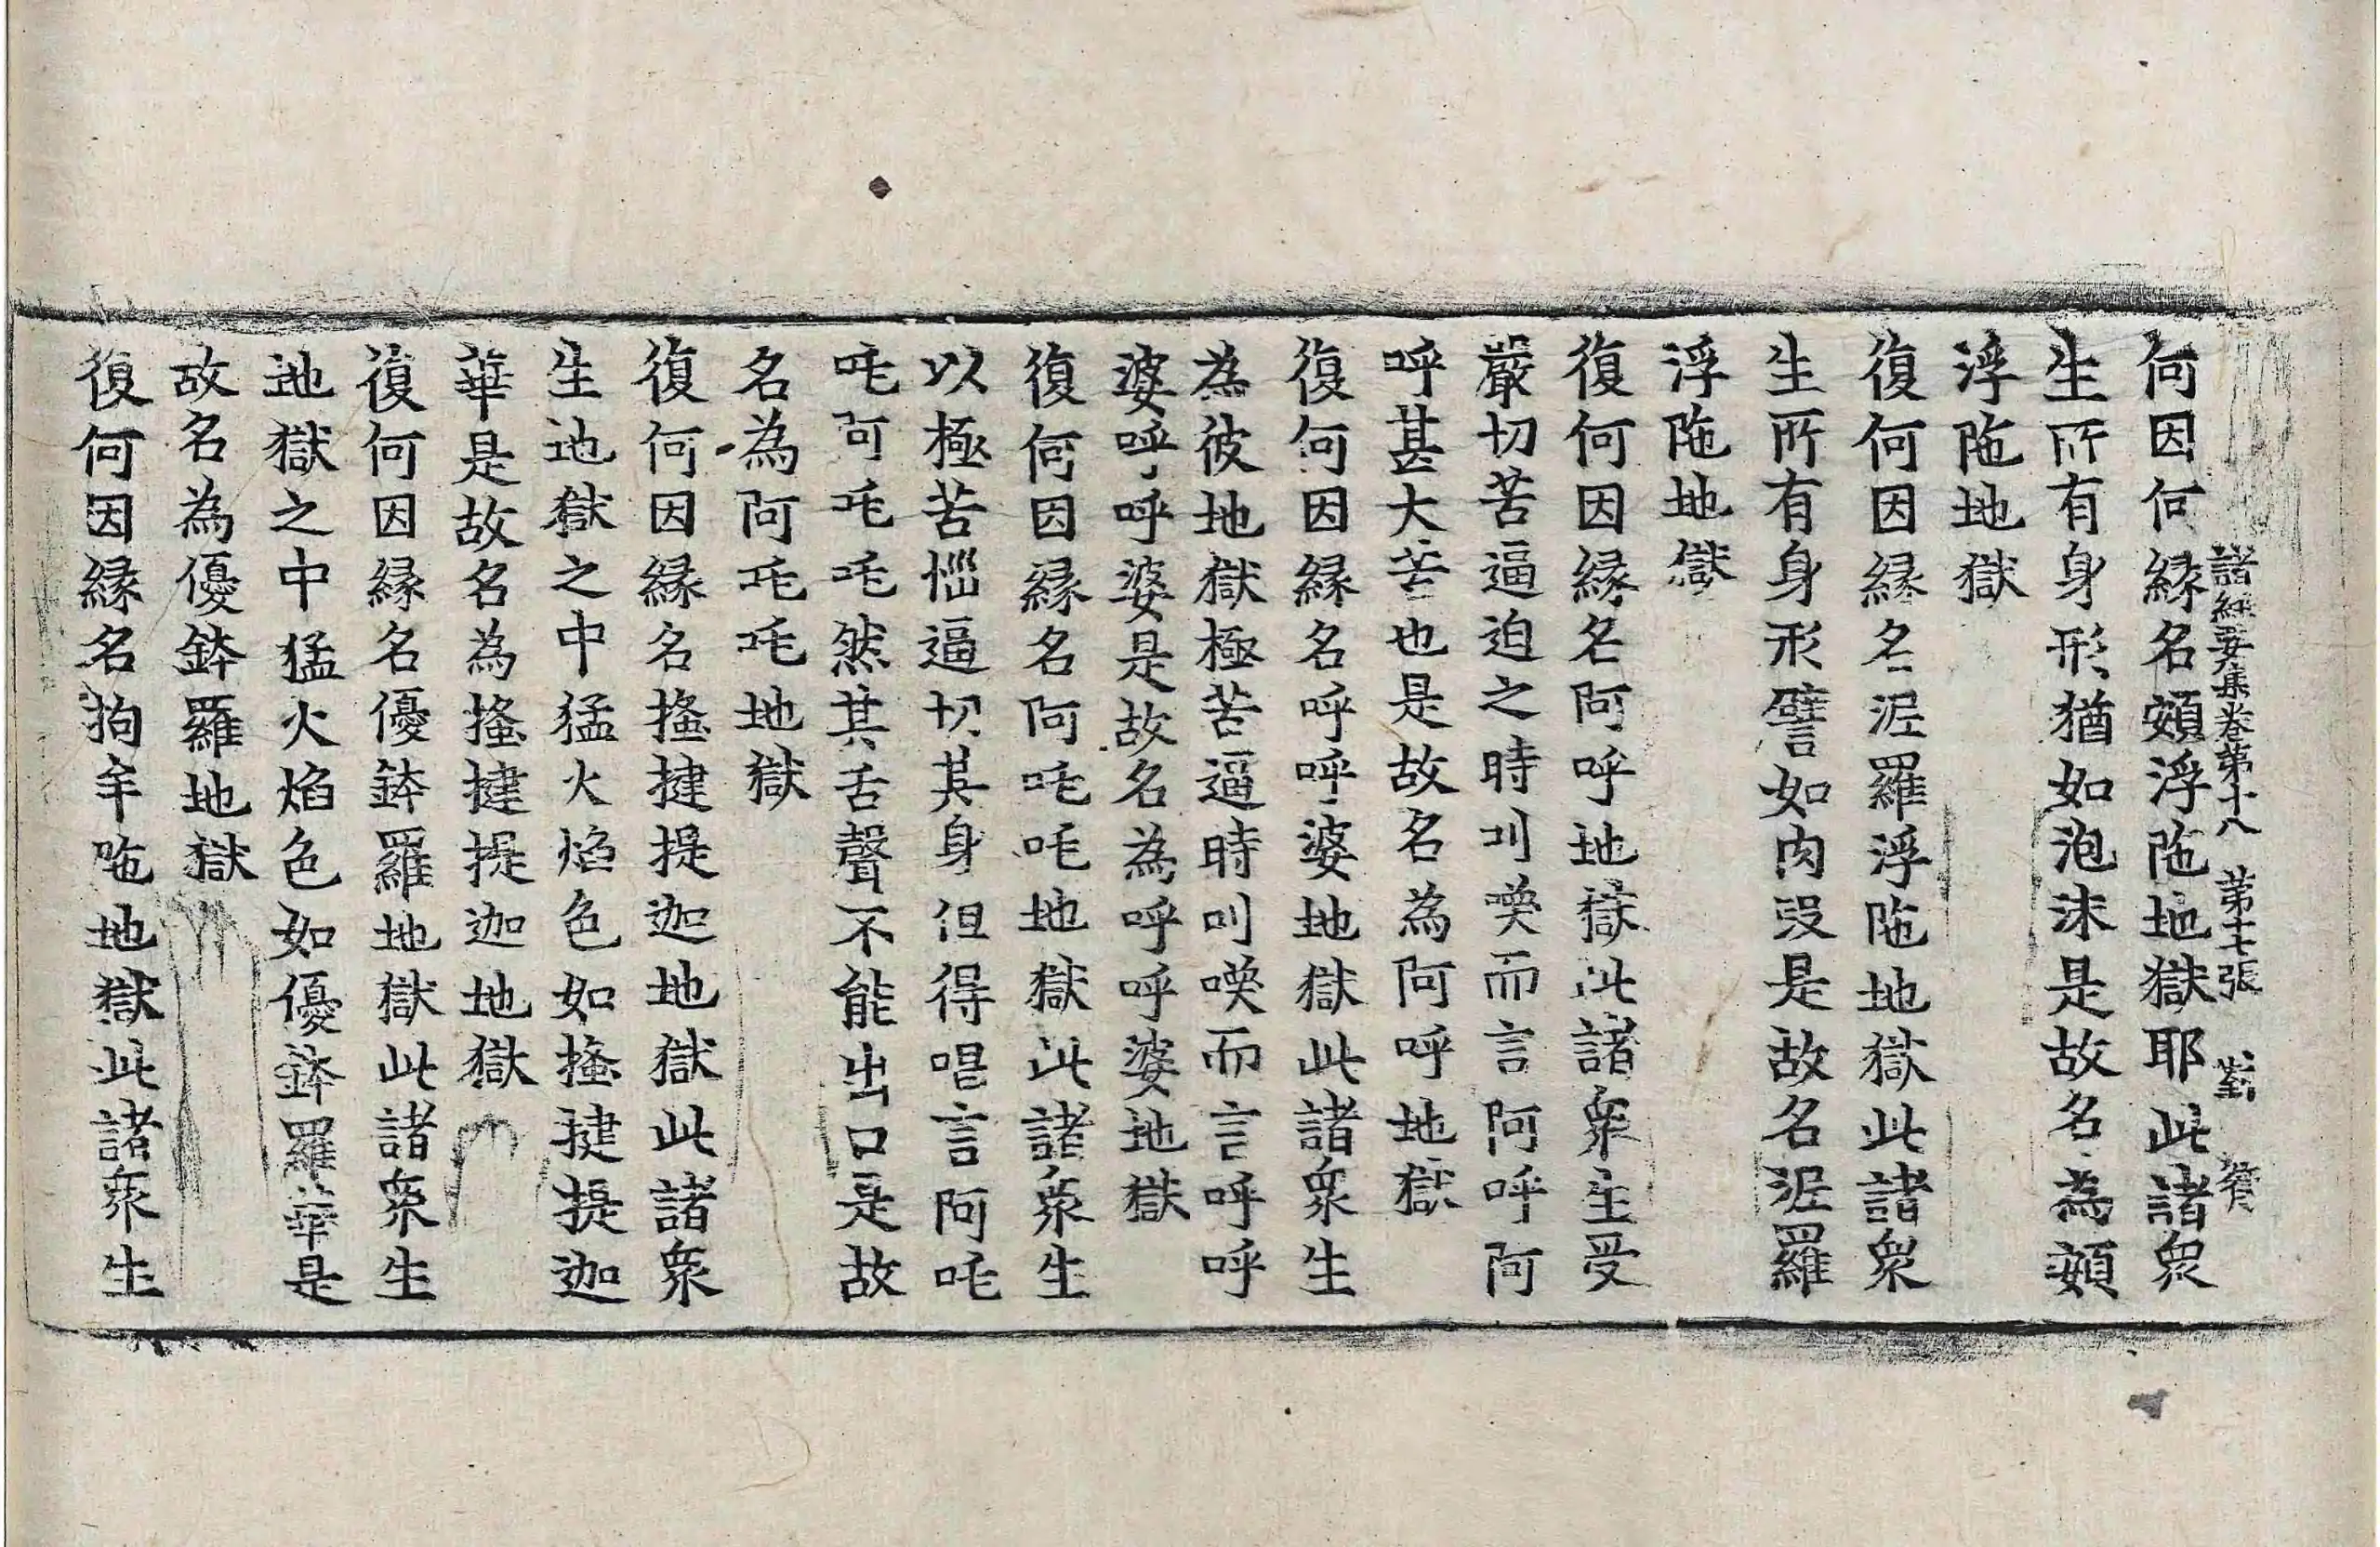 諸經要集卷第十八 第十七張 對
何因何緣名頞浮陁地獄耶此諸衆
生所有身形猶如泡沫是故名為頞
浮陁地獄
復何因緣名泥羅浮陁地獄此諸衆
生所有身形譬如肉段是故名泥羅
浮陁地獄
復何因緣名阿呼地獄此諸衆生受
嚴切苦逼迫之時叫喚而言阿呼阿
呼甚大苦也是故名為阿呼地獄
復何因緣名呼呼婆地獄此諸衆生
為彼地獄極苦逼時叫喚而言呼呼
婆呼呼婆是故名為呼呼婆地獄
復何因緣名阿吒吒地獄此諸衆生
以極苦惱逼切其身但得唱言阿吒
吒阿吒吒然其舌聲不能出口是故
名為阿吒吒地獄
復何因緣名搔揵提迦地獄此諸衆
生地獄之中猛火焰色如搔揵提迦
華是故名為搔揵提迦地獄
復何因緣名優鉢羅地獄此諸衆生
地獄之中猛火焰色如優鉢羅華是
故名為優鉢羅地獄
復何因緣名拘牟陁地獄此諸衆生